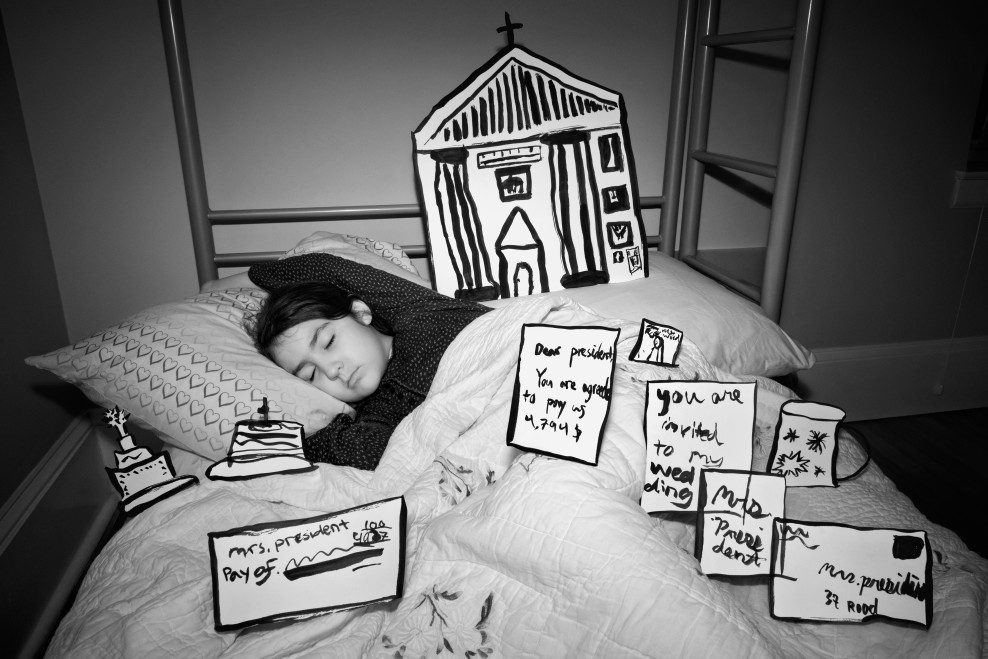 Dear president
You are agreed
to pay us
4,794 $
you are
invited
to my
wed
ding
mrs
Presi
denzt
mrs. president
Pay of.
100
mrs. president
37 Rood